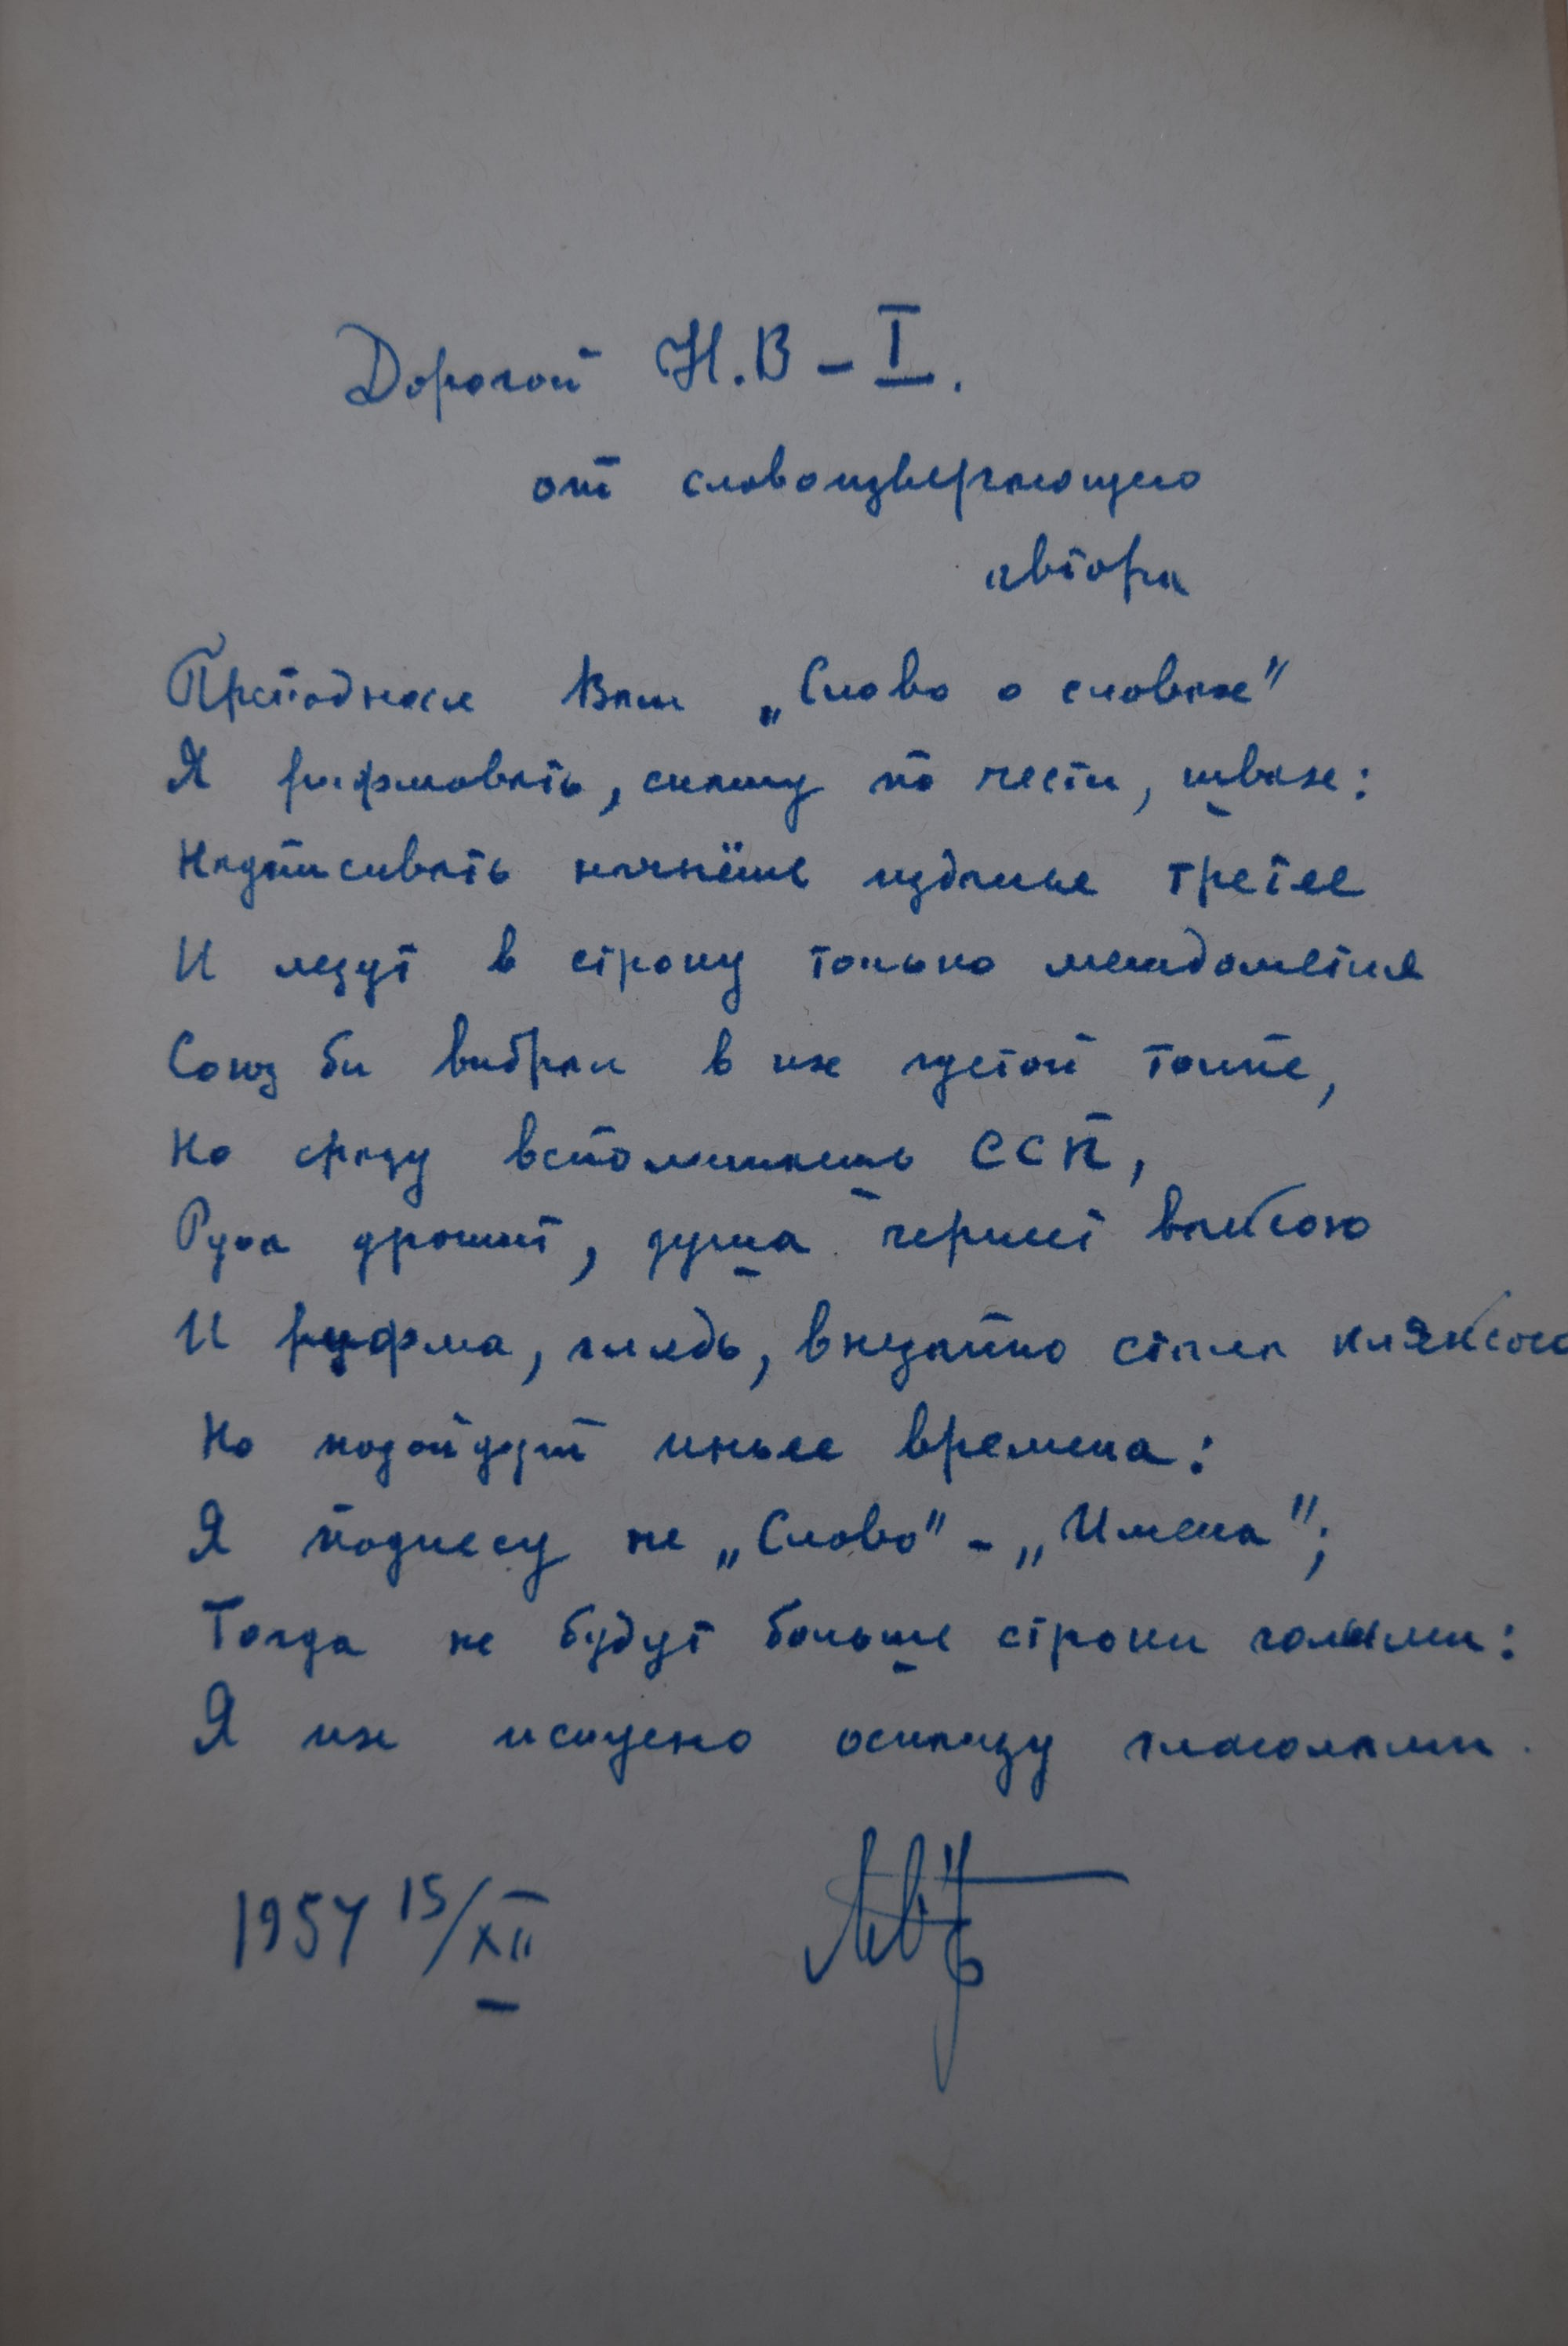 Дорогой Н.В – I.
от словоизвергающего
автора
Преподнося Вам „Слово о словах"
Я рифмовать, скажу по чести, швах:
Надписывать начнёшь изданье третее
И лезут в строку только междометия
Союз бы выбрал в их густой толпе,
Но сразу вспоминаешь ССП,
Рука дрожит, душа чернит ваксою
И рифма, глядь, внезапно стала кляксою
Но подойдут иные времена:
Я поднесу не „Слово" – „Имена";
Тогда не будут больше строки голыми:
Я их искусно осклизу глаголами.
1957 15/XII